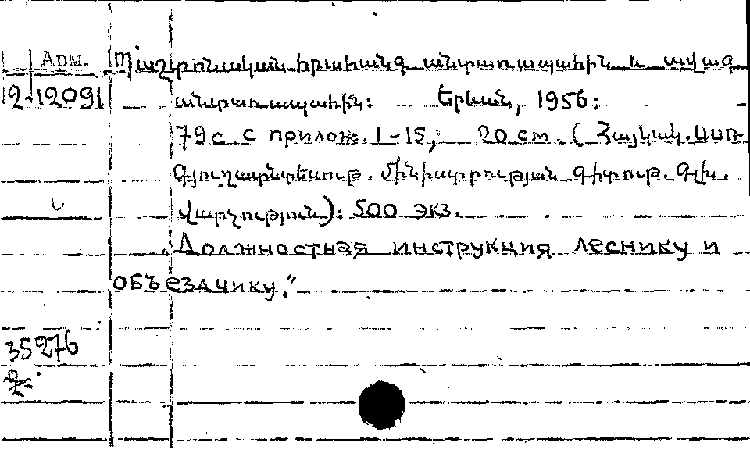 Арм. Պաշտոնական հրահանգ անտառապահին և ավագ
12-12091 անտառապահին: Երևան, 1956:
79 с с прилож. 1-15, 20 см. (Հայկակ. ՍՍՌ
Գյուղատնտեսութ. Մինիստրության գիտութ. Գլխ.
Վարչություն): 500 экз.
„Должностная инструкция леснику и
объездчику.“
35276